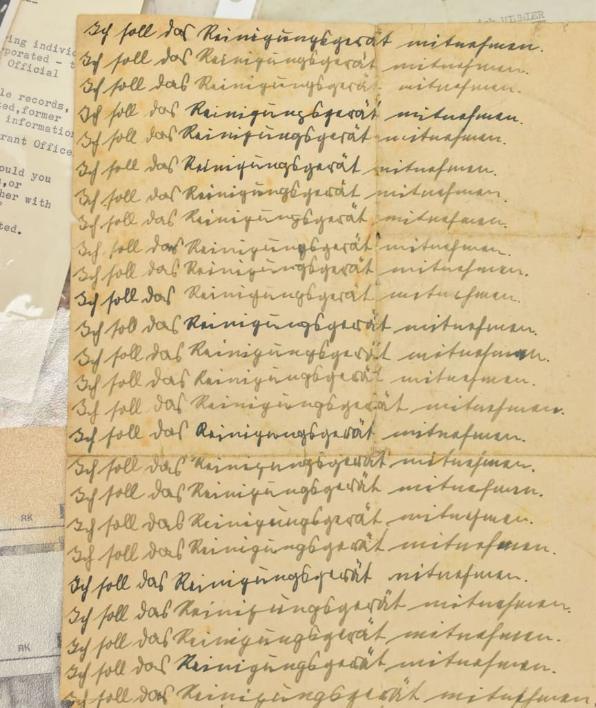 ing indivi
porated -
Official
le records,
ted, former
information
rant Office
ould you
, or
her with
ted.
RK
RK
Ich soll das Reinigungsgerät mitnehmen.
Ich soll das Reinigungsgerät mitnehmen.
Ich soll das Reinigungsgerät mitnehmen.
Ich soll das Reinigungsgerät mitnehmen.
Ich soll das Reinigungsgerät mitnehmen.
Ich soll das Reinigungsgerät mitnehmen.
Ich soll das Reinigungsgerät mitnehmen.
Ich soll das Reinigungsgerät mitnehmen.
Ich soll das Reinigungsgerät mitnehmen.
Ich soll das Reinigungsgerät mitnehmen.
Ich soll das Reinigungsgerät mitnehmen.
Ich soll das Reinigungsgerät mitnehmen.
Ich soll das Reinigungsgerät mitnehmen.
Ich soll das Reinigungsgerät mitnehmen.
Ich soll das Reinigungsgerät mitnehmen.
Ich soll das Reinigungsgerät mitnehmen.
Ich soll das Reinigungsgerät mitnehmen.
Ich soll das Reinigungsgerät mitnehmen.
Ich soll das Reinigungsgerät mitnehmen.
Ich soll das Reinigungsgerät mitnehmen.
Ich soll das Reinigungsgerät mitnehmen.
Ich soll das Reinigungsgerät mitnehmen.
Ich soll das Reinigungsgerät mitnehmen.
Ich soll das Reinigungsgerät mitnehmen.
Ich soll das Reinigungsgerät mitnehmen.